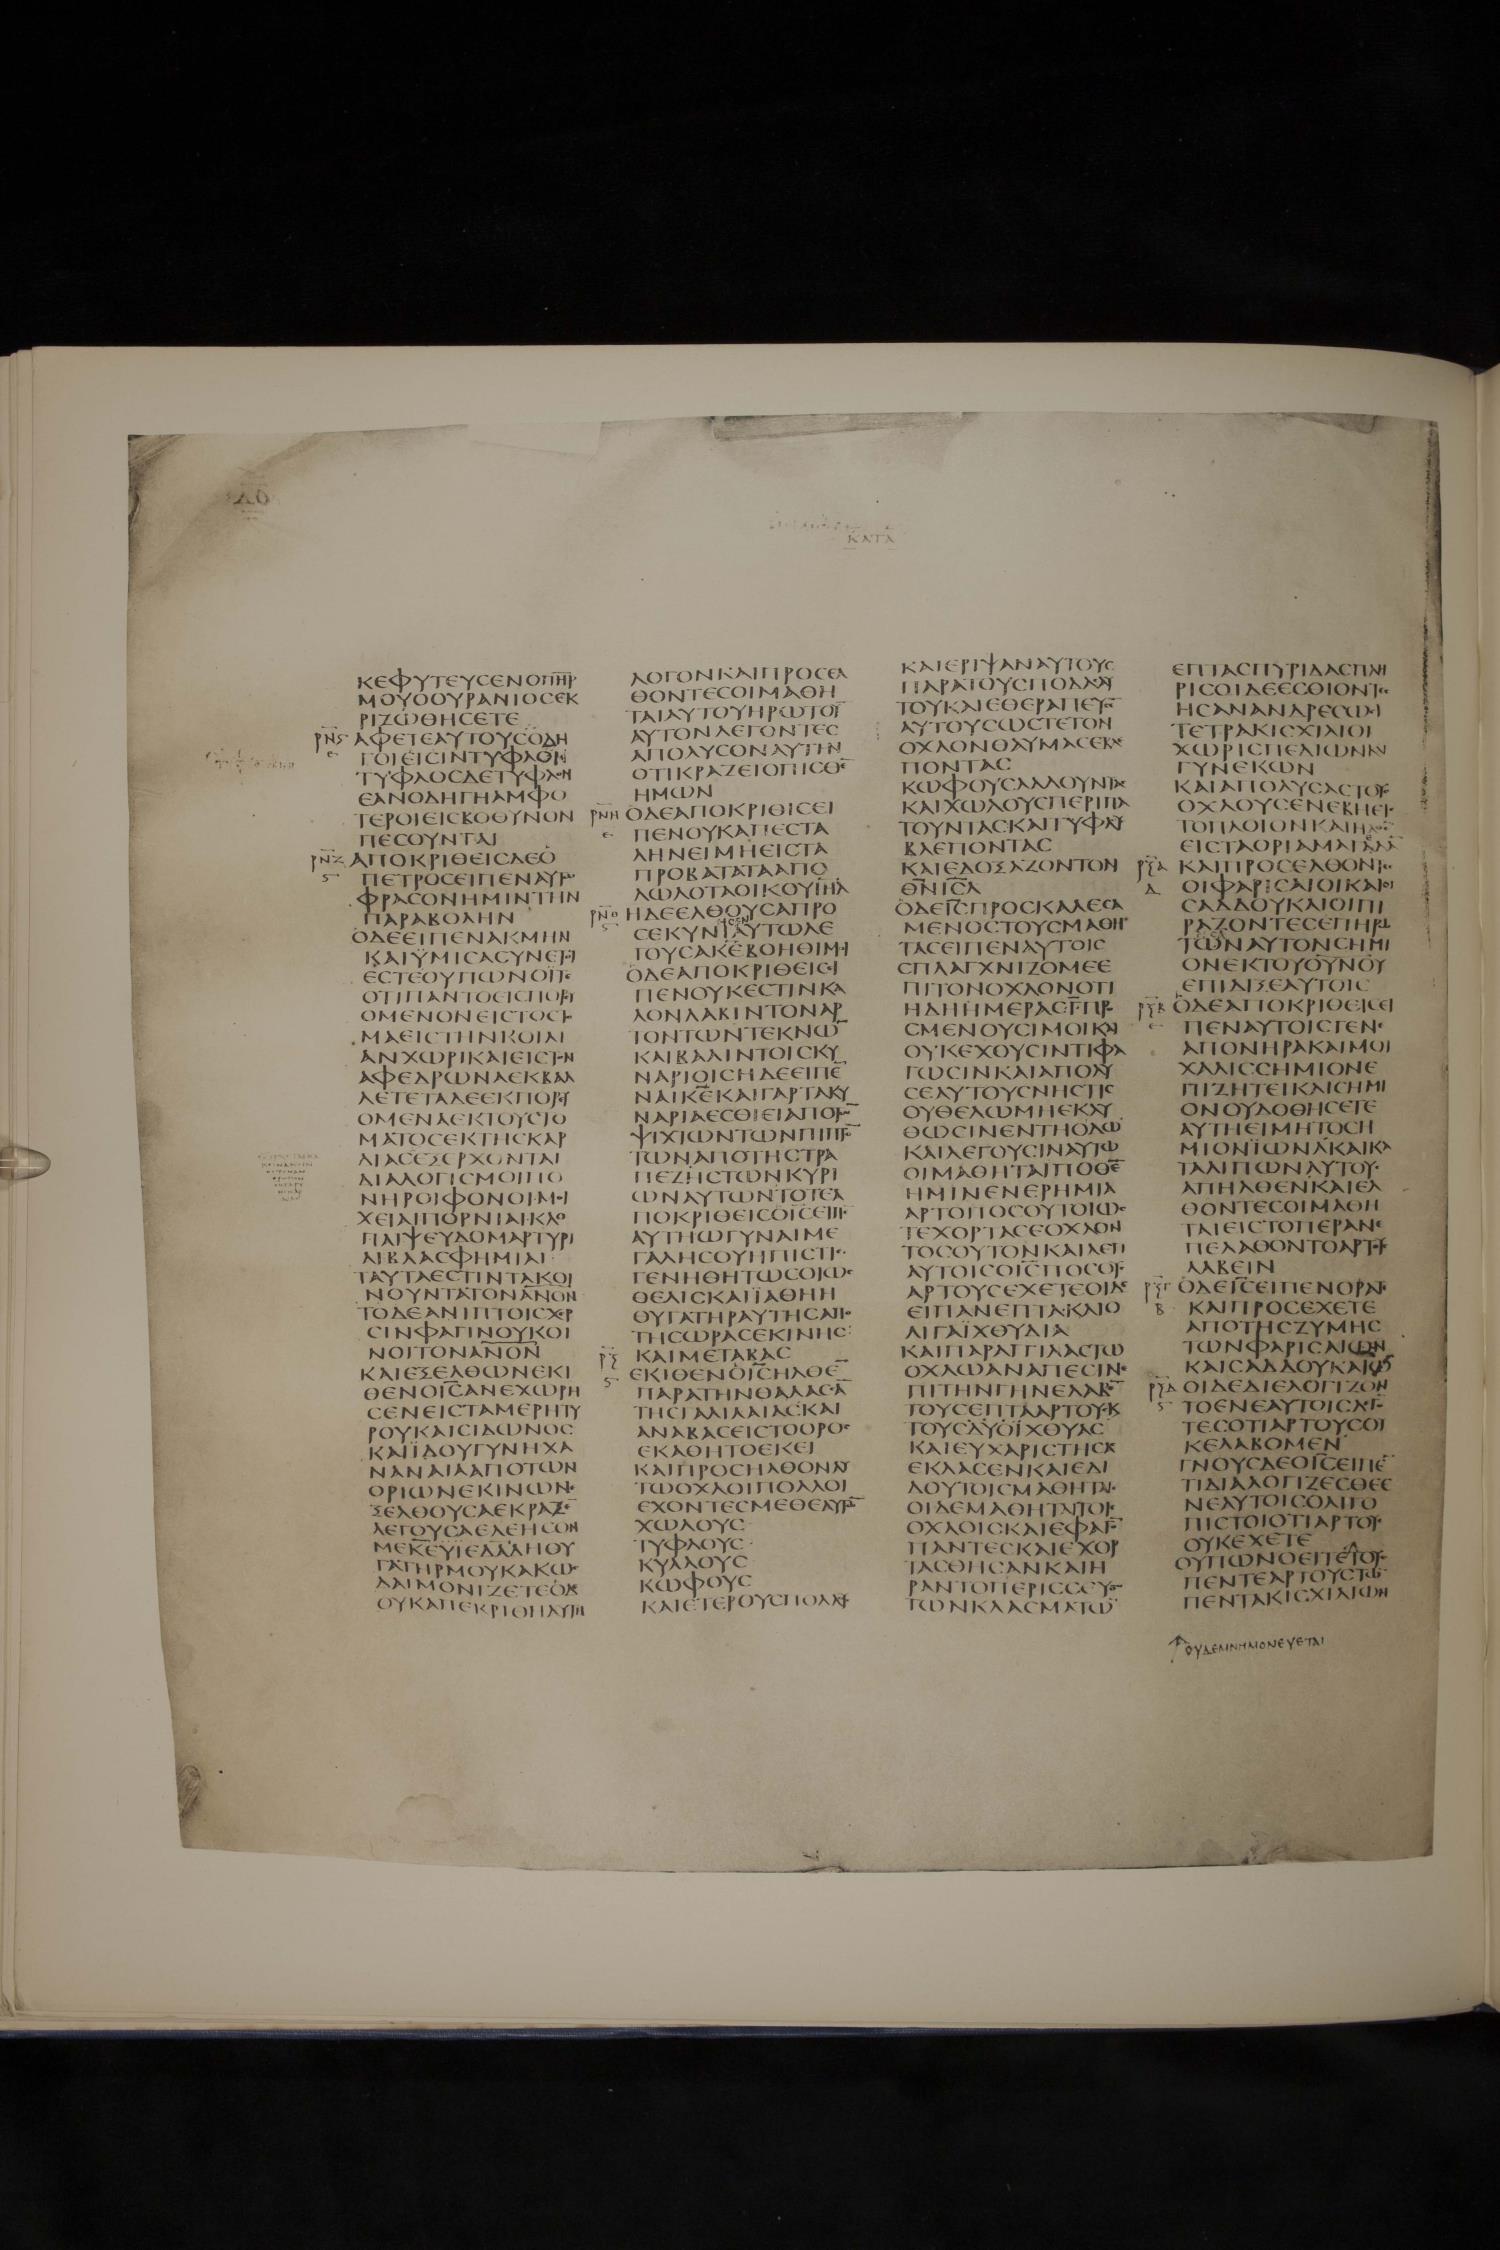 ΚΑΤΑ
ΚΕΦΥΤΕΥСΕΝΟΠΗΡ
ΜΟΥΟΟΥΡΑΝΙΟСΕΚ
ΡΙΖΩΘΗСΕΤΕ
ΑΦΕΤΕΑΥΤΟΥСΟΔΗ
ΓΟΙΕΙСΙΝΤΥΦΛΟΙ
ΤΥΦΛΟСΔΕΤΥΦΛΟΝ
ΕΑΝΟΔΗΓΗΑΜΦΟ
ΤΕΡΟΙΕΙСΒΟΘΥΝΟΝ
ΠΕСΟΥΝΤΑΙ
ΑΠΟΚΡΙΘΕΙСΔΕΟ
ΠΕΤΡΟСΕΙΠΕΝΑΥΤΩ
ΦΡΑСΟΝΗΜΙΝΤΗΝ
ΠΑΡΑΒΟΛΗΝ
ΟΔΕΕΙΠΕΝΑΚΜΗΝ
ΚΑΙΫΜΙСΑСΥΝΕΤΟΙ
ΕСΤΕΟΥΠΩΝΟΪΤΕ
ΟΤΙΠΑΝΤΟΕΙСΠΟΡΕΥ
ΟΜΕΝΟΝΕΙСΤΟСΤΟ
ΜΑΕΙСΤΗΝΚΟΙΛΙ
ΑΝΧΩΡΙΚΑΙΕΙСΤΟΝ
ΑΦΕΔΡΩΝΑΕΚΒΑΛ
ΛΕΤΕΤΑΔΕΕΚΠΟΡΕΥ
ΟΜΕΝΑΕΚΤΟΥСΤΟ
ΜΑΤΟСΕΚΤΗСΚΑΡ
ΔΙΑСΕΞΕΡΧΟΝΤΑΙ
ΔΙΑΛΟΓΙСΜΟΙΠΟ
ΝΗΡΟΙΦΟΝΟΙΜΟΙ
ΧΕΙΑΙΠΟΡΝΙΑΙΚΛΟ
ΠΑΙΨΕΥΔΟΜΑΡΤΥΡΙ
ΑΙΒΛΑСΦΗΜΙΑΙ
ΤΑΥΤΑΕСΤΙΝΤΑΚΟΙ
ΝΟΥΝΤΑΤΟΝΑΝΟΝ
ΤΟΔΕΑΝΙΠΤΟΙСΧΕΡ
СΙΝΦΑΓΙΝΟΥΚΟΙ
ΝΟΙΤΟΝΑΝΟΝ
ΚΑΙΕΞΕΛΘΩΝΕΚΙ
ΘΕΝΟΙСΑΝΕΧΩΡΗ
СΕΝΕΙСΤΑΜΕΡΗΤΥ
ΡΟΥΚΑΙСΙΔΩΝΟС
ΚΑΙΪΔΟΥΓΥΝΗΧΑ
ΝΑΝΑΙΑΑΠΟΤΩΝ
ΟΡΙΩΝΕΚΙΝΩΝΕ
ΞΕΛΘΟΥСΑΕΚΡΑΖΕ
ΛΕΓΟΥСΑΕΛΕΗСΟΝ
ΜΕΚΕΫΪΕΔΑΔΗΟΥ
ΓΑΤΗΡΜΟΥΚΑΚΩС
ΔΑΙΜΟΝΙΖΕΤΕΟΔΕ
ΟΥΚΑΠΕΚΡΙΘΗΑΥΤΗ
ΛΟΓΟΝΚΑΙΠΡΟСΕΛ
ΘΟΝΤΕСΟΙΜΑΘΗ
ΤΑΙΑΥΤΟΥΗΡΩΤΟΥ
ΑΥΤΟΝΛΕΓΟΝΤΕС
ΑΠΟΛΥСΟΝΑΥΤΗΝ
ΟΤΙΚΡΑΖΕΙΟΠΙСΘΕ
ΗΜΩΝ
ΟΔΕΑΠΟΚΡΙΘΙСΕΙ
ΠΕΝΟΥΚΑΠΕСΤΑ
ΛΗΝΕΙΜΗΕΙСΤΑ
ΠΡΟΒΑΤΑΤΑΑΠΟ
ΛΩΛΟΤΑΟΙΚΟΥΙΗΛ
ΗΔΕΕΛΘΟΥСΑΠΡΟ
СΕΚΥΝΙΑΥΤΩΛΕ
ΓΟΥСΑΚΕΒΟΗΘΙΜΟΙ
ΟΔΕΑΠΟΚΡΙΘΕΙСΕΙ
ΠΕΝΟΥΚΕСΤΙΝΚΑ
ΛΟΝΛΑΒΙΝΤΟΝΑΡ
ΤΟΝΤΩΝΤΕΚΝΩ
ΚΑΙΒΑΛΙΝΤΟΙСΚΥ
ΝΑΡΙΟΙСΗΔΕΕΙΠΕ
ΝΑΙΚΕΚΑΙΓΑΡΤΑΚΥ
ΝΑΡΙΑΕСΘΙΕΙΑΠΟΤΩ
ΨΙΧΙΩΝΤΩΝΠΙΠΤΟ
ΤΩΝΑΠΟΤΗСΤΡΑ
ΠΕΖΗСΤΩΝΚΥΡΙ
ΩΝΑΥΤΩΝΤΟΤΕΑ
ΠΟΚΡΙΘΕΙСΟΙСΕΙΠΕ
ΑΥΤΗΩΓΥΝΑΙΜΕ
ΓΑΛΗСΟΥΗΠΙСΤΙС
ΓΕΝΗΘΗΤΩСΟΙΩС
ΘΕΛΙСΚΑΙΪΑΘΗΗ
ΘΥΓΑΤΗΡΑΥΤΗСΑΠΟ
ΤΗСΩΡΑСΕΚΙΝΗС
ΚΑΙΜΕΤΑΒΑС
ΕΚΙΘΕΝΟΙСΗΛΘΕ
ΠΑΡΑΤΗΝΘΑΛΑССΑ
ΤΗСΓΑΛΙΛΑΙΑСΚΑΙ
ΑΝΑΒΑСΕΙСΤΟΟΡΟС
ΕΚΑΘΗΤΟΕΚΕΙ
ΚΑΙΠΡΟСΗΛΘΟΝΑΥ
ΤΩΟΧΛΟΙΠΟΛΛΟΙ
ΕΧΟΝΤΕСΜΕΘΕΑΥΤΩ
ΧΩΛΟΥС
ΤΥΦΛΟΥС
ΚΥΛΛΟΥС
ΚΩΦΟΥС
ΚΑΙΕΤΕΡΟΥСΠΟΛΛΟΥС
ΚΑΙΕΡΙΨΑΝΑΥΤΟΥС
ΠΑΡΑΤΟΥСΠΟΔΑСΑΥ
ΤΟΥΚΑΙΕΘΕΡΑΠΕΥСΕ
ΑΥΤΟΥСΩСΤΕΤΟΝ
ΟΧΛΟΝΘΑΥΜΑСΕΒΛΕ
ΠΟΝΤΑС
ΚΩΦΟΥСΛΑΛΟΥΝΤΑС
ΚΑΙΧΩΛΟΥСΠΕΡΙΠΑ
ΤΟΥΝΤΑСΚΑΙΤΥΦΛΟΥС
ΒΛΕΠΟΝΤΑС
ΚΑΙΕΔΟΞΑΖΟΝΤΟΝ
ΘΝΙСΛ
ΟΔΕΙСΠΡΟСΚΑΛΕСΑ
ΜΕΝΟСΤΟΥСΜΑΘΗ
ΤΑСΕΙΠΕΝΑΥΤΟΙС
СΠΛΑΓΧΝΙΖΟΜΕΕ
ΠΙΤΟΝΟΧΛΟΝΟΤΙ
ΗΔΗΗΜΕΡΑСΓΠΡΟ
СΜΕΝΟΥСΙΜΟΙΚΑΙ
ΟΥΚΕΧΟΥСΙΝΤΙΦΑ
ΓΩСΙΝΚΑΙΑΠΟΛΥ
СΕΑΥΤΟΥСΝΗСΤΙС
ΟΥΘΕΛΩΜΗΕΚΛΥ
ΘΩСΙΝΕΝΤΗΟΔΩ
ΚΑΙΛΕΓΟΥСΙΝΑΥΤΩ
ΟΙΜΑΘΗΤΑΙΠΟΘΕ
ΗΜΙΝΕΝΕΡΗΜΙΑ
ΑΡΤΟΙΤΟСΟΥΤΟΙΩС
ΤΕΧΟΡΤΑСΕΟΧΛΟΝ
ΤΟСΟΥΤΟΝΚΑΙΛΕΓΙ
ΑΥΤΟΙСΟΙСΠΟСΟΥС
ΑΡΤΟΥСΕΧΕΤΕΟΙΔΕ
ΕΙΠΑΝΕΠΤΑΚΑΙΟ
ΛΙΓΑΪΧΘΥΔΙΑ
ΚΑΙΠΑΡΑΓΓΙΛΑСΤΩ
ΟΧΛΩΑΝΑΠΕСΙΝΕ
ΠΙΤΗΝΓΗΝΕΛΑΒΕ
ΤΟΥСΕΠΤΑΑΡΤΟΥСΚΑΙ
ΤΟΥСΔΥΟΪΧΘΥΑС
ΚΑΙΕΥΧΑΡΙСΤΗСΑС
ΕΚΛΑСΕΝΚΑΙΕΔΙ
ΔΟΥΤΟΙСΜΑΘΗΤΑΙС
ΟΙΔΕΜΑΘΗΤΑΙΤΟΙС
ΟΧΛΟΙСΚΑΙΕΦΑΓΟ
ΠΑΝΤΕСΚΑΙΕΧΟΡ
ΤΑСΘΗСΑΝΚΑΙΗ
ΡΑΝΤΟΠΕΡΙССΕΥΟ
ΤΩΝΚΛΑСΜΑΤΩ
ΕΠΤΑСΠΥΡΙΔΑСΠΛΗ
ΡΙСΟΙΔΕΕСΘΙΟΝΤΕС
ΗСΑΝΑΝΔΡΕСΩСΙ
ΤΕΤΡΑΚΙСΧΙΛΙΟΙ
ΧΩΡΙСΠΕΔΙΩΝΚΑΙ
ΓΥΝΕΚΩΝ
ΚΑΙΑΠΟΛΥСΑСΤΟΥС
ΟΧΛΟΥСΕΝΕΒΗΕΙС
ΤΟΠΛΟΙΟΝΚΑΙΗΛΘΕ
ΕΙСΤΑΟΡΙΑΜΑΓΑΔΑ
ΚΑΙΠΡΟСΕΛΘΟΝΤΕС
ΟΙΦΑΡΙСΑΙΟΙΚΑΙΟΙ
СΑΔΔΟΥΚΑΙΟΙΠΙ
ΡΑΖΟΝΤΕСΕΠΗΡΩ
ΤΩΝΑΥΤΟΝСΗΜΙ
ΟΝΕΚΤΟΥΟΥΝΟΥ
ΕΠΙΔΙΞΕΑΥΤΟΙС
ΟΔΕΑΠΟΚΡΙΘΕΙСΕΙ
ΠΕΝΑΥΤΟΙСΓΕΝΕ
ΑΠΟΝΗΡΑΚΑΙΜΟΙ
ΧΑΛΙССΗΜΙΟΝΕ
ΠΙΖΗΤΕΙΚΑΙСΗΜΙ
ΟΝΟΥΔΟΘΗСΕΤΕ
ΑΥΤΗΕΙΜΗΤΟСΗ
ΜΙΟΝΪΩΝΑΚΑΙΚΑ
ΤΑΛΙΠΩΝΑΥΤΟΥС
ΑΠΗΛΘΕΝΚΑΙΕΛ
ΘΟΝΤΕСΟΙΜΑΘΗ
ΤΑΙΕΙСΤΟΠΕΡΑΝΕ
ΠΕΛΑΘΟΝΤΟΑΡΤΟΥС
ΛΑΒΕΙΝ
ΟΔΕΙСΕΙΠΕΝΟΡΑΤΕ
ΚΑΙΠΡΟСΕΧΕΤΕ
ΑΠΟΤΗСΖΥΜΗС
ΤΩΝΦΑΡΙСΑΙΩΝ
ΚΑΙСΑΔΔΟΥΚΑΙΩΝ
ΟΙΔΕΔΙΕΛΟΓΙΖΟΝ
ΤΟΕΝΕΑΥΤΟΙСΛΕΓΟ
ΤΕСΟΤΙΑΡΤΟΥСΟΥ
ΚΕΛΑΒΟΜΕΝ
ΓΝΟΥСΔΕΟΙСΕΙΠΕ
ΤΙΔΙΑΛΟΓΙΖΕСΘΕΕ
ΝΕΑΥΤΟΙСΟΛΙΓΟ
ΠΙСΤΟΙΟΤΙΑΡΤΟΥС
ΟΥΚΕΧΕΤΕ
ΟΥΠΩΝΟΕΙΤΕΤΟΥС
ΠΕΝΤΕΑΡΤΟΥСΤΩ
ΠΕΝΤΑΚΙСΧΙΛΙΩΝ
ΟΥΔΕΜΝΗΜΟΝΕΥΕΤΑΙ